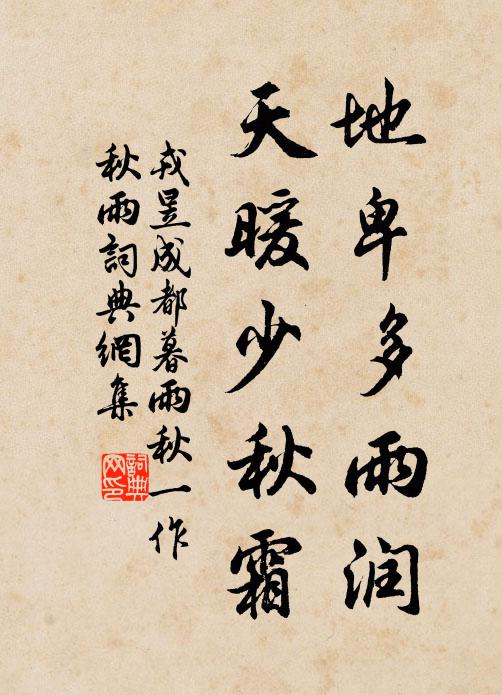 地卑多雨润
天暖少秋霜
戎昱成都暮雨秋一作
秋雨詞典網集
詞典
网印